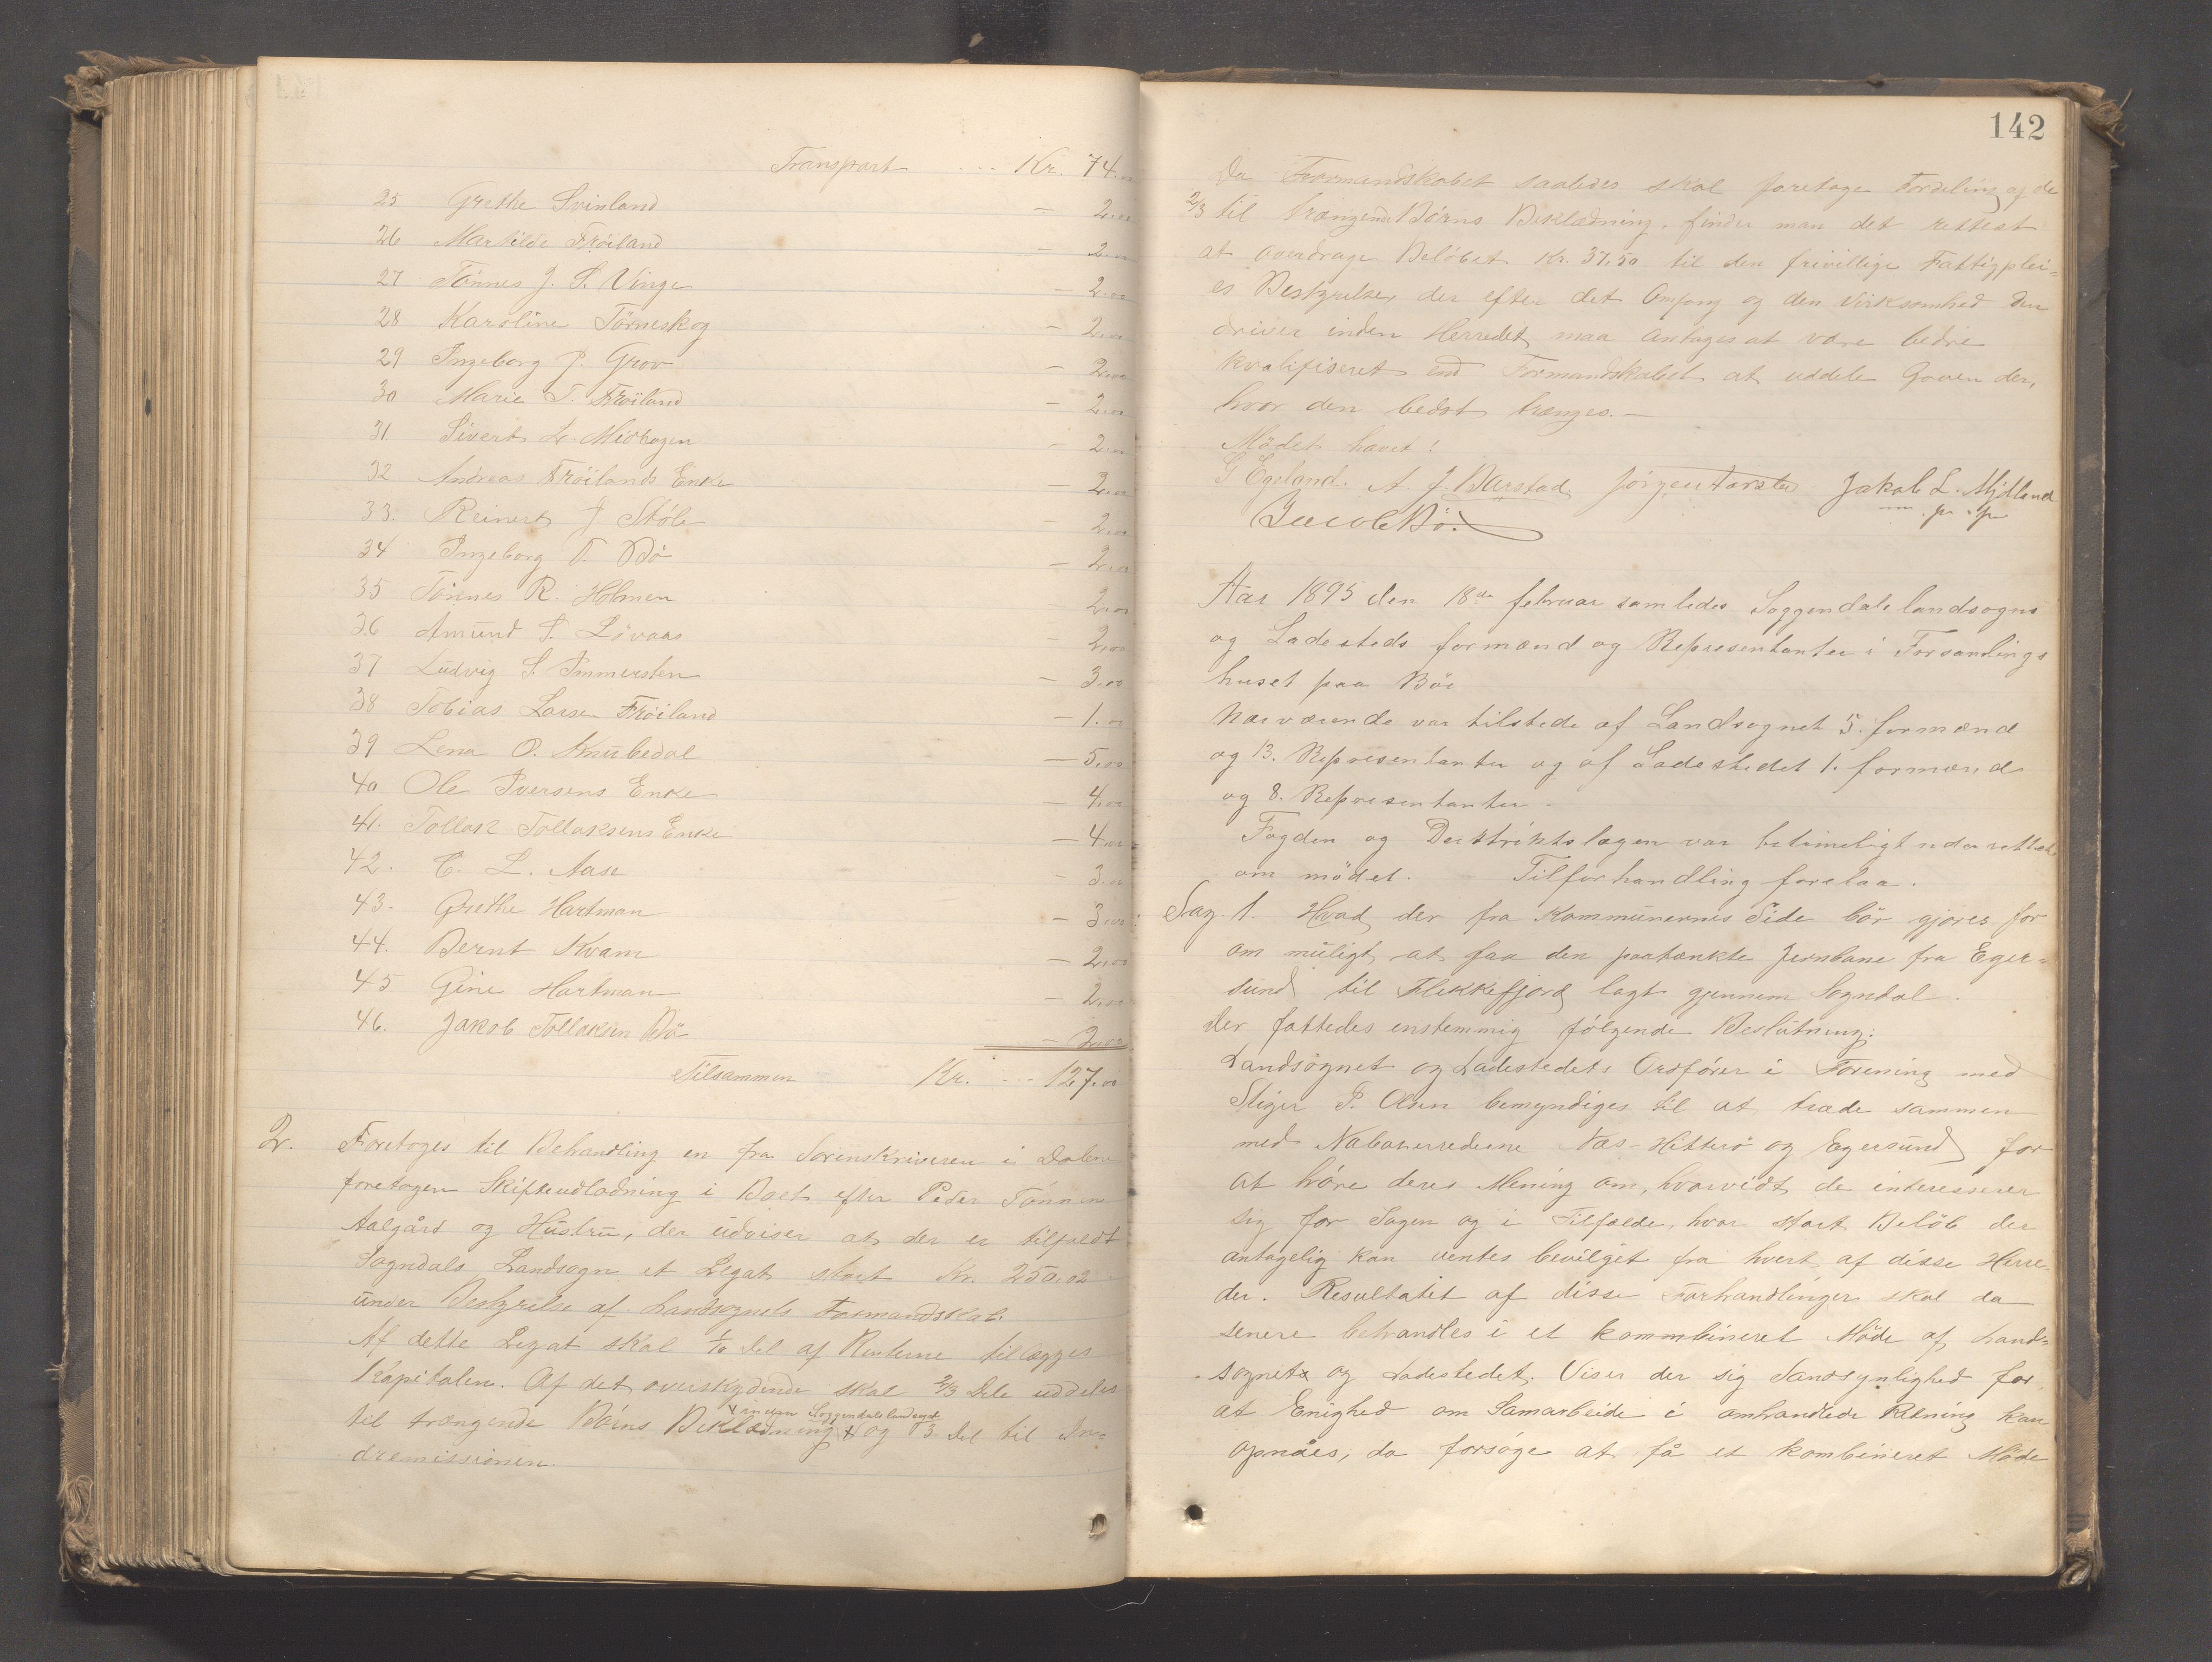 Transport ... Kr. 74.00
25 Grethe Svinland — 2.00
26 Martilde Frøiland — 2.00
27 Tönnes J. S. Vinge — 2.00
28 Karoline Törneskog — 2.00
29 Ingeborg P. Grov — 2.00
30 Marie T. Frøiland — 2.00
31. Sivert L. Midbøgen — 2.00
32 Andreas Frøilands Enke — 2.00
33. Reinert J. Støle — 2.00
34 Ingeborg T. Bö — 2.00
35 Tönnes R. Holmen 2.00
36 Amund S. Lövaas — 2.00
37 Ludvig S. Immersten — 3.00
38 Tobias Larsen Frøiland — 1.00
39 Lena O. Knubedal — 5.00
40 Ole Iversens Enke — 4.00
41. Tollak Tollaksens Enke — 4.00
42. C. L. Aase — 3.00
43. Grethe Hartman — 3.00
44. Bernt Kvam — 2.00
45 Gine Hartman — 2.00
46. Jakob Tollaksen Bö — 2.00
Tilsammen Kr. ... 127.00
2. Foretoges til Behandling en fra Sorenskriveren i Dalene
foretagen Skifteudlodning i Boet efter Peder Tönnesen
Aalgård og Hustru, der udviser at der er tilfaldt
Sogndals Landsogn et Legat stort Kr. 250.02
under Bestyrelse af Landsognets Formandskab.
Af dette Legat skal 1/10 del af Renterne tillægges
Kapitalen. Af det overskydende skal 2/3 Dele uddeles
x inden Soggendals landsogn
til trængende Børns Beklædning x og 1/3 del til In=
dremissionen.
142
Da Formandskabet saaledes skal foretage Fordeling af de
2/3 til trængende Børns Beklædning, finder man det rettest
at overdrage Belöbet Kr. 37,50 til den frivillige Fattigplei=
es Bestyrelse, der efter det Omfang og den Virksomhed den
driver inden Herredet, maa antages at være bedre
kvalifiseret end Formandskabet at uddele Gaven der,
hvor den bedst trænges.—
Mödet hævet!
G Egeland. A. J. Barstad Jörgen Jakob L. Mydland
m. p. p
Jacob Bö.
Aar 1895 den 18de februar samledes Soggendals landsogns
og Ladesteds formænd og Representanter i Forsamlings
huset paa Böe
Nærværende var tilstede af Landsognet 5. formænd
og 13. Representanter og af Ladestedet 1. formænd
og 8. Representanter.
Fogden og Destriktslægen var betimeligt underrettet
om mödet. Tilforhandling forelaa.
Sag. 1. Hvad der fra Kommunernes Side bör gjöres for
om muligt at faa den paatænkte Jernbane fra Eger=
sund til Flekkefjord lagt gjennem Sogndal.
Der fattedes enstemmig fölgende Beslutning:
Landsognet og Ladestedets Ordförer i Forening med
Steiger P. Olsen bemyndiges til at træde sammen
med Naboherrederne Næs-Hitterö og Egersund for
at höre deres Mening om, hvorvidt de interesserer
sig for Sagen og i Tilfælde, hvor stort Belöb der
antagelig kan ventes bevilget fra hvert af disse Herre=
der. Resultatet af disse Forhandlinger skal da
senere behandles i et kommbineret Möde af Land=
sognet og Ladestedet. Viser der sig Sandsynlighed for
at Enighed om Samarbeide i omhandlede Retning kan
opnåes, da forsöge at få et kombineret Möde